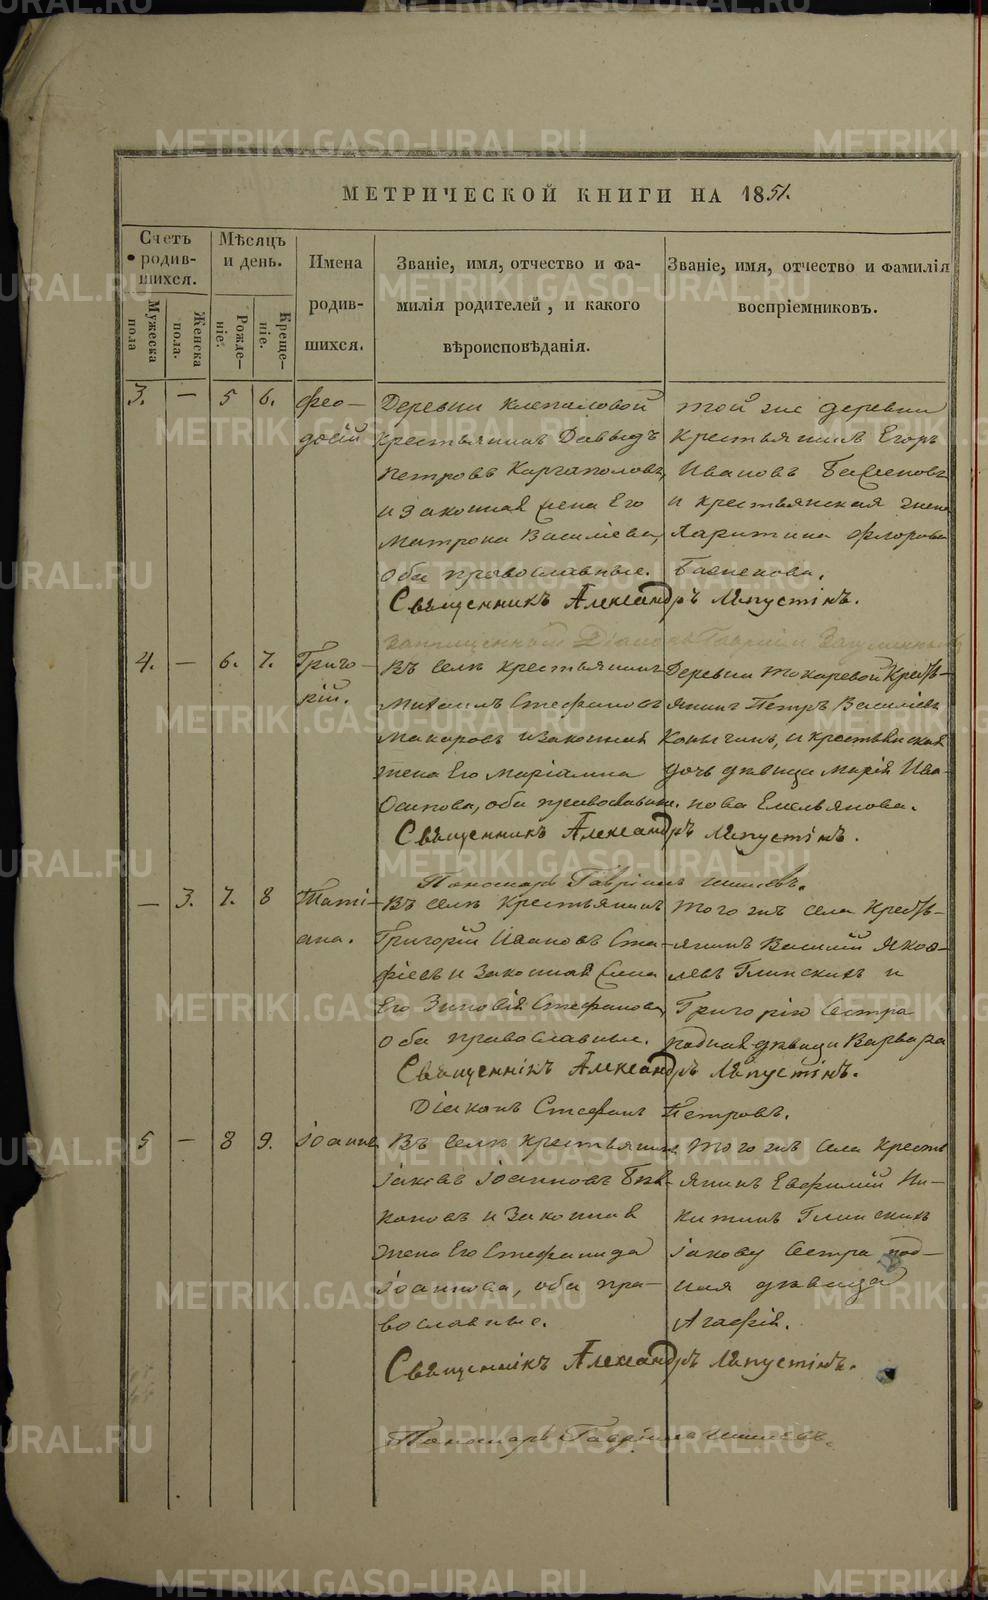 МЕТРИЧЕСКОЙ КНИГИ НА 1851.
Счетъ родив-шихся.
Мужеска пола
Женска пола.
Мѣсяцъ и день.
Рожде-ніе.
Креще-ніе.
Имена родив-шихся.
Званіе, имя, отчество и фа-
милія родителей, и какого
вѣроисповѣданія.
Званіе, имя, отчество и фамилія
воспріемниковъ.
3. — 5 6. Фео-
досій
Деревни Клепаловой
крестьянинъ Давыдъ
Петровъ Каргаполовъ,
и законная жена Его
Матрона Василіева,
оба православные.
той же деревни
крестьянинъ Егоръ
Ивановъ
и крестьянская жена
Харитина Флорова
Священникъ Александръ Ляпустинъ.
4. — 6. 7. Григо-
рій.
Въ селѣ крестьянинъ
Михаилъ Стефановъ
Макаровъ и законная
жена Его Маріамна
Осипова, оба православные.
Деревни Токаревой Кресть-
янинъ Петръ Василіевъ
и крестьянская
дочь дѣвица Марія Ива-
нова Емельянова.
Священникъ Александръ Ляпустинъ.
Пономарь Гавріилъ
— 3. 7. 8 Таті-
ана.
Въ селѣ Крестьянинъ
Григорій Ивановъ Ста-
и законная жена
Его Зиновія Стефанова,
оба православные.
того жъ села Кресть-
янинъ Василій Яков-
левъ Глинскихъ и
Григорію сестра
родная дѣвица Варвара
Священникъ Александръ Ляпустинъ.
Діаконъ Стефанъ Петровъ.
5 — 8 9. Іоаннъ
Въ селѣ крестьянинъ
Іаковъ Іоанновъ
и законная
жена Его Стефанида
Іоаннова, оба пра-
вославные.
того жъ села кресть
янинъ Евфимій Ни-
китинъ Глинскихъ
Іакову сестра род-
ная дѣвица
Агафія.
Священникъ Александръ Ляпустинъ.
Пономарь Гавріилъ
METRIKI.GASO-URAL.RU